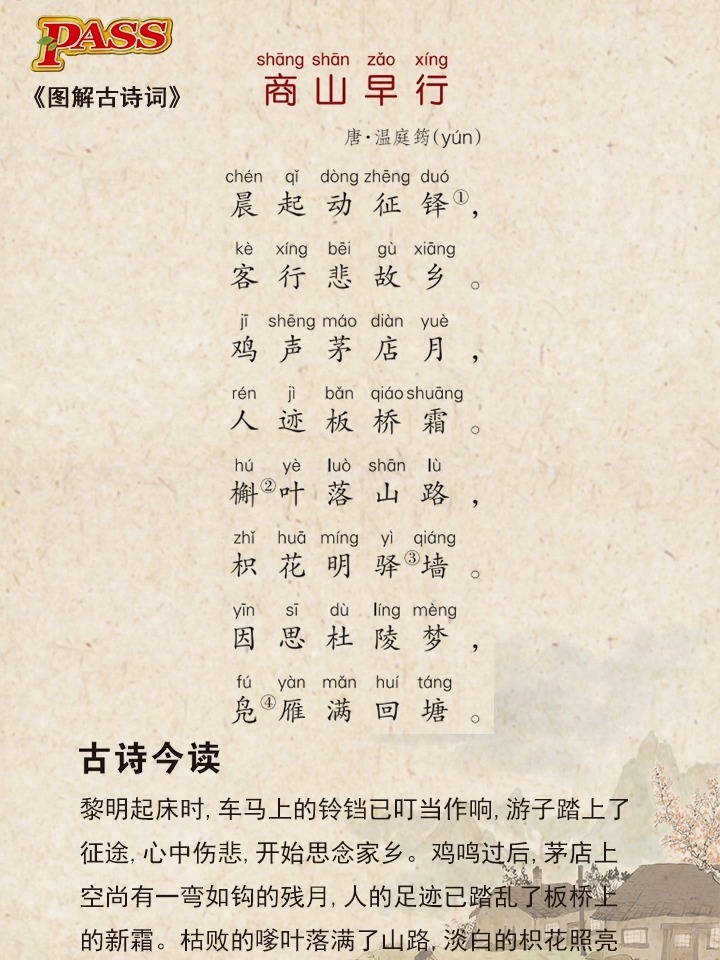 PASS
《图解古诗词》
shāng shān zǎo xíng
商山早行
唐·温庭筠(yún)
chén qǐ dòng zhēng duó
晨起动征铎①,
kè xíng bēi gù xiāng
客行悲故乡。
jī shēng máo diàn yuè
鸡声茅店月,
rén jì bǎn qiáo shuāng
人迹板桥霜。
hú yè luò shān lù
槲②叶落山路,
zhǐ huā míng yì qiáng
枳花明驿③墙。
yīn sī dù líng mèng
因思杜陵梦,
fú yàn mǎn huí táng
凫④雁满回塘。
古诗今读
黎明起床时,车马上的铃铛已叮当作响,游子踏上了
征途,心中伤悲,开始思念家乡。鸡鸣过后,茅店上
空尚有一弯如钩的残月,人的足迹已踏乱了板桥上
的新霜。枯败的嗲叶落满了山路,淡白的枳花照亮